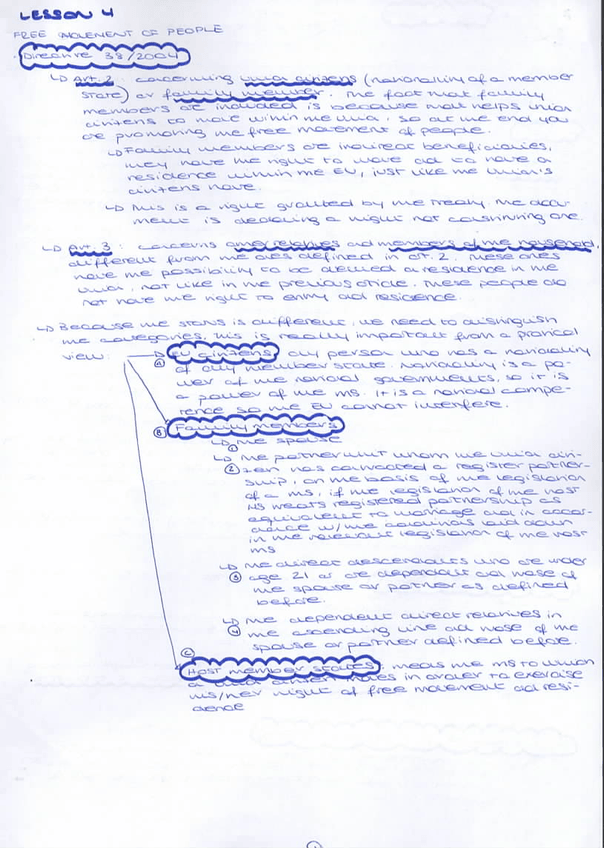 LESSON 4
FREE MOVEMENT OF PEOPLE
Directive 38/2004
↳ Art. 2: concerning union citizens (nationality of a member
state) or family member. The fact that family
members are included is because that helps union
citizens to move within the union, so at the end you
are promoting the free movement of people.
↳ Family members are indirect beneficiaries,
they have the right to move and to have a
residence within the EU, just like the union's
citizens have.
↳ This is a right granted by the treaty, the docu-
ment is declaring a right not constituting one
↳ Art. 3: concerns other relatives and members of the household,
different from the ones defined in art. 2. These ones
have the possibility to be allowed a residence in the
union, not like in the previous article. These people do
not have the right to entry and residence.
↳ Because the status is different, we need to distinguish
the categories, this is really important from a practical
view:
A EU citizens: any person who has a nationality
of any member state. Nationality is a po-
wer of the national governments, so it is
a power of the MS. It is a national compe-
tence so the EU cannot interfere.
B Family members
↳ 1 the spouse
↳ the partner w/ whom the union citi-
2 zen has contracted a register partner-
ship, on the basis of the legislation
of a MS, if the legislation of the host
MS treats registered partnership as
equivalent to marriage and in accor-
dance w/ the conditions laid down
in the relevant legislation of the host
MS
↳ the direct descendants who are under
3 age 21 or are dependant and those of
the spouse or partner as defined
before.
↳ the dependent direct relatives in
4 the ascending line and those of the
spouse or partner defined before.
C
Host member states: means the MS to which
a union citizen moves in order to exercise
his/her right of free movement and resi-
dence